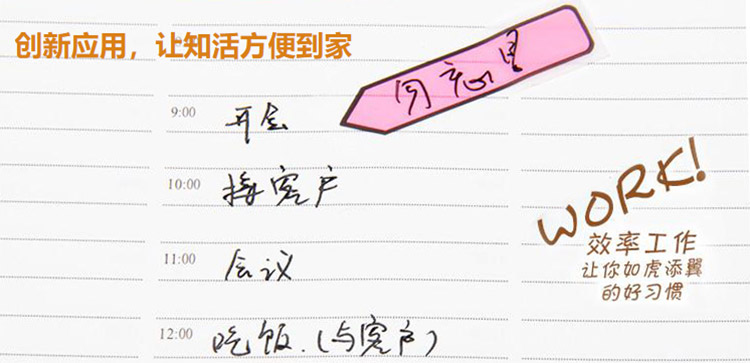 创新应用，让知活方便到家
勿忘
9:00 开会
10:00 接客户
11:00 会议
12:00 吃饭.(与客户)
WORK!
效率工作
让你如虎添翼
的好习惯